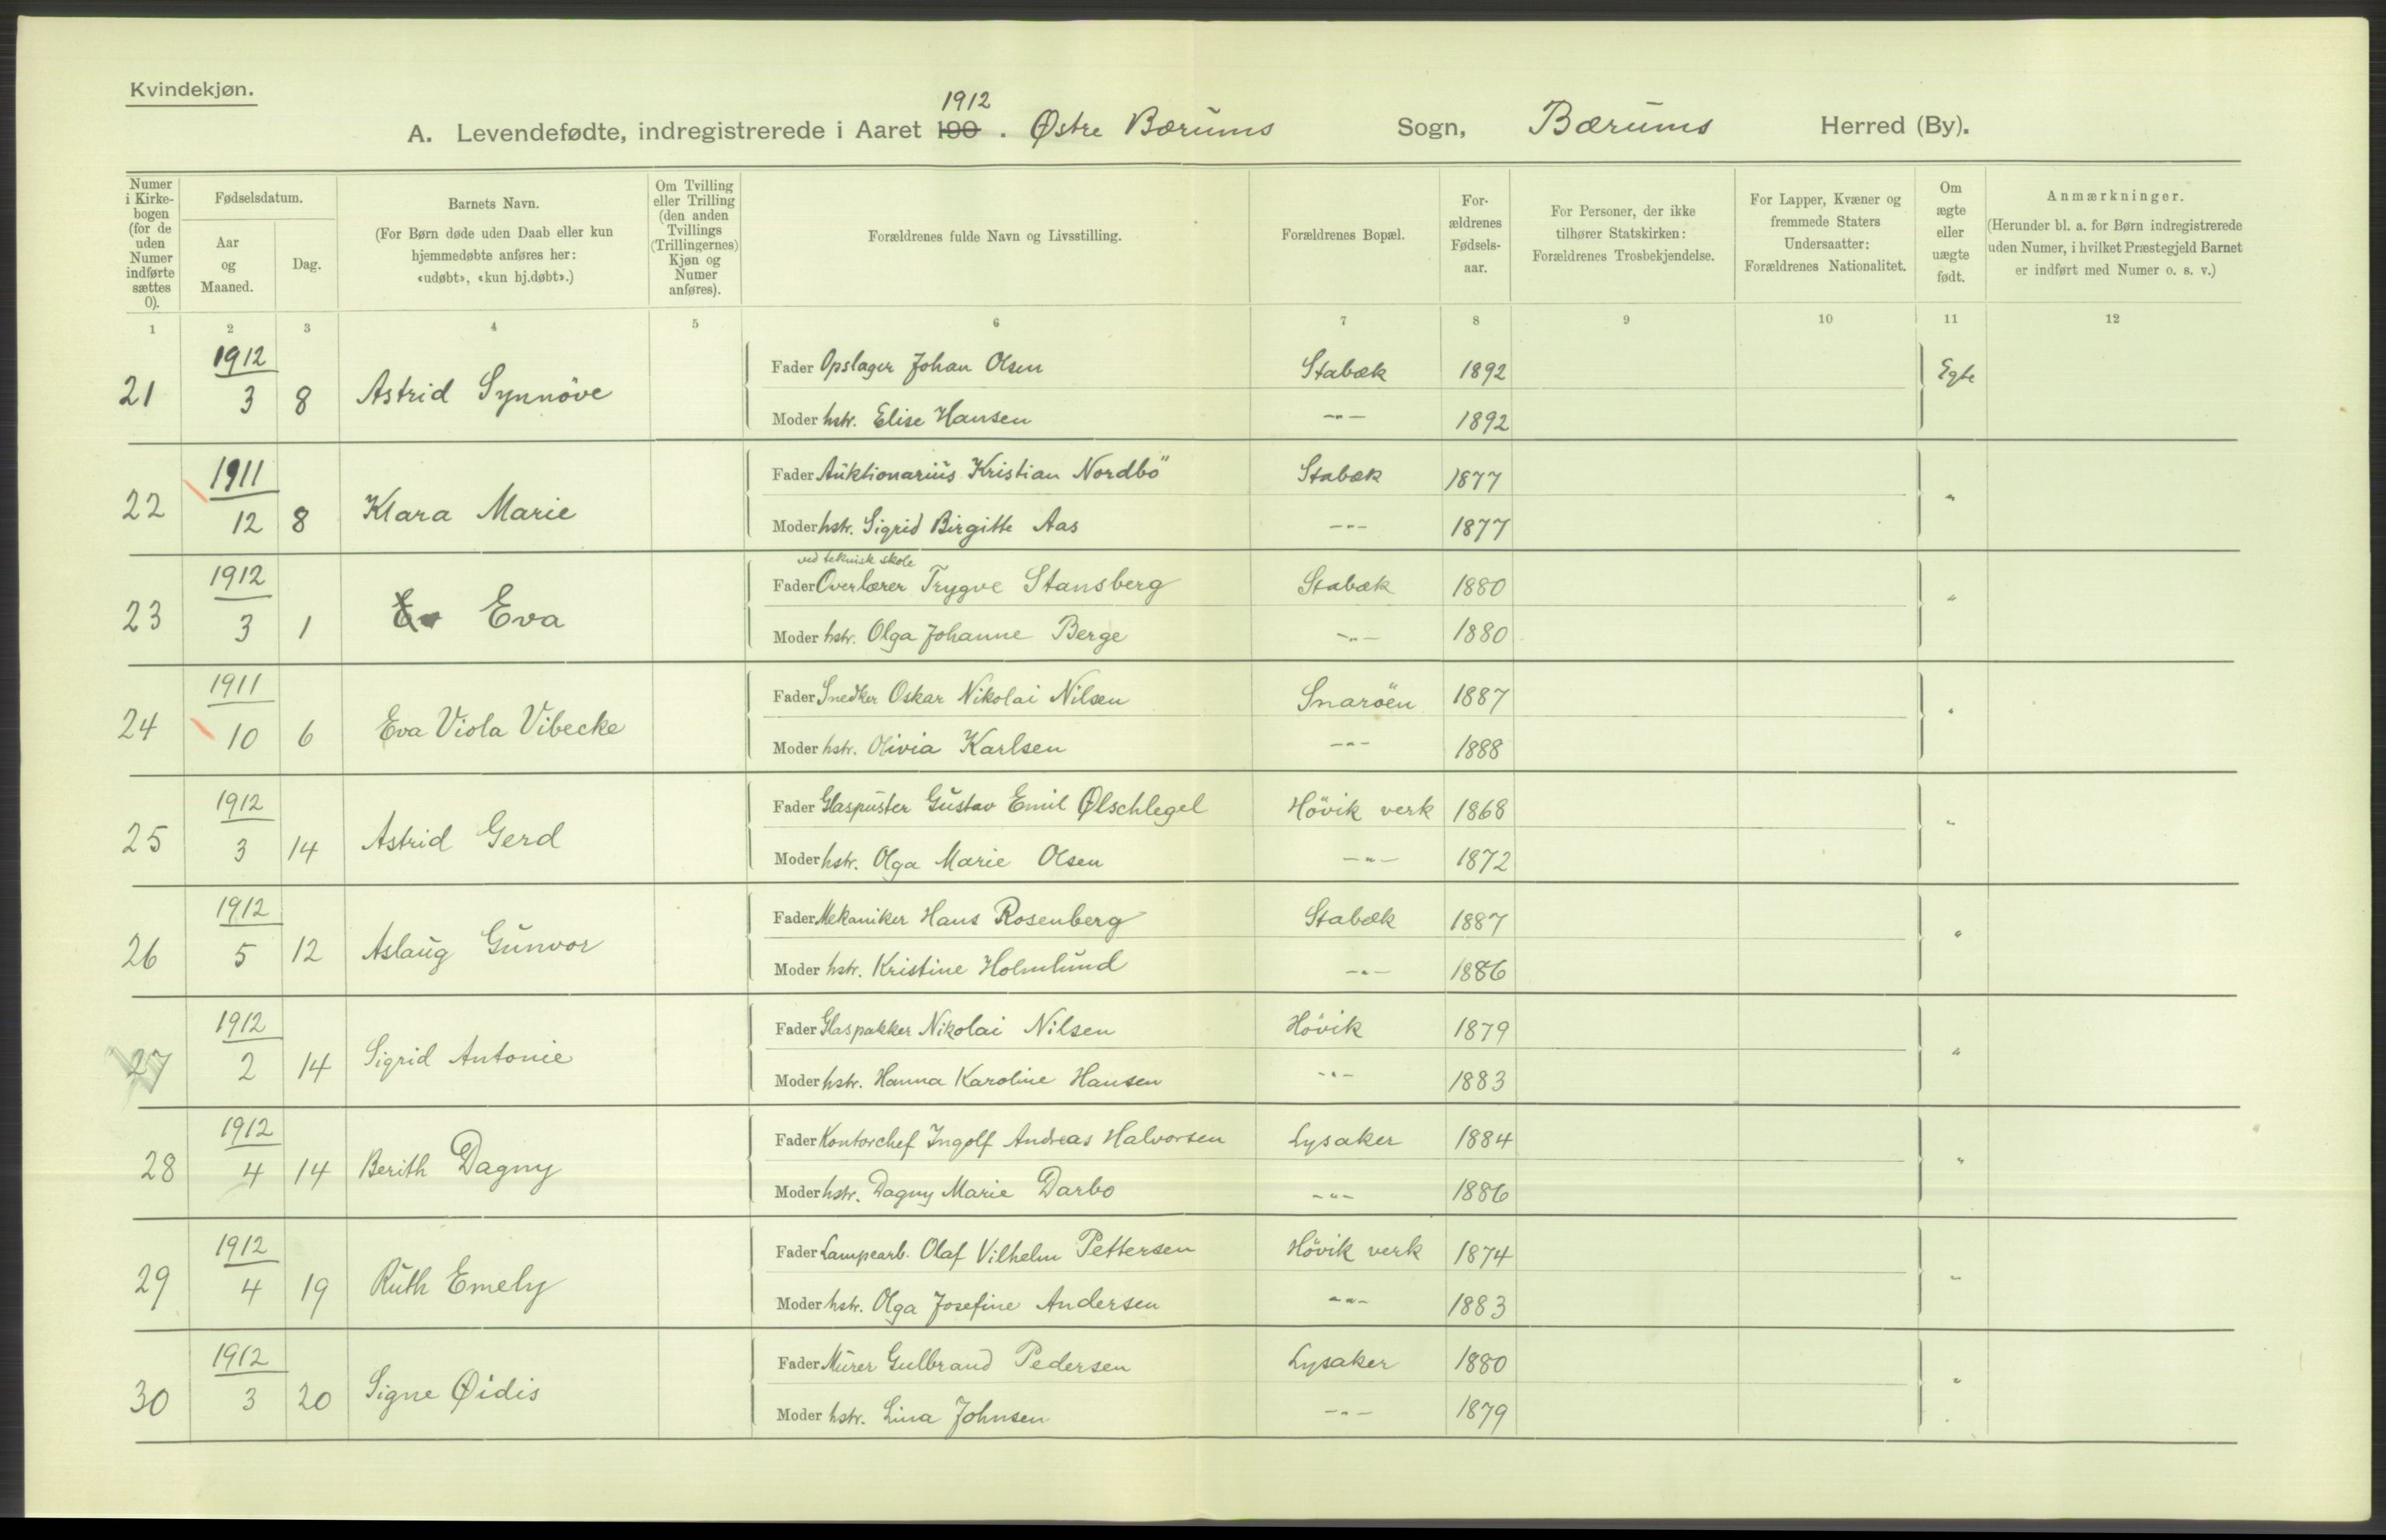 Kvindekjøn.
1912
A. Levendefødte, indregistrerede i Aaret 190 . Østre Bærums Sogn, Bærums Herred (By).
Numer i Kirkebogen (for de uden Numer indførte sættes 0).
Fødselsdatum.
Aar og Maaned.
Dag.
Barnets Navn.
(For Børn døde uden Daab eller kun hjemmedøbte anføres her: «udøbt», «kun hj.døbt».)
Om Tvilling eller Trilling (den anden Tvillings (Trillingernes) Kjøn og Numer anføres).
Forældrenes fulde Navn og Livsstilling.
Forældrenes Bopæl.
For-ældrenes Fødsels-aar.
For Personer, der ikke tilhører Statskirken: Forældrenes Trosbekjendelse.
For Lapper, Kvæner og fremmede Staters Undersaatter: Forældrenes Nationalitet.
Om ægte eller uægte født.
Anmærkninger.
(Herunder bl. a. for Børn indregistrerede uden Numer, i hvilket Præstegjeld Barnet er indført med Numer o. s. v.)
1 2 3 4 5 6 7 8 9 10 11 12
1912
21 3 8 Astrid Synnöve Fader Opslager Johan Olsen Stabæk 1892 Egte
Moder hstr. Elise Hansen -"- 1892
1911
22 12 8 Klara Marie Fader Auktionarius Kristian Nordbö Stabæk 1877 "
Moder hstr. Sigrid Birgitte Aas -"- 1877
1912
ved teknisk skole
23 3 1 Eva Fader Overlærer Trygve Stansberg Stabæk 1880 "
Moder hstr. Olga Johanne Berge -"- 1880
1911
24 10 6 Eva Viola Vibecke Fader Snedker Oskar Nikolai Nilsen Snaröen 1887 "
Moder hstr. Olivia Karlsen -"- 1888
1912
25 3 14 Astrid Gerd Fader Glaspuster Gustav Emil Ølschlegel Hövik verk 1868 "
Moder hstr. Olga Marie Olsen -"- 1872
1912
26 5 12 Aslaug Gunvor Fader Mekaniker Hans Rosenberg Stabæk 1887 "
Moder hstr. Kristine Holmlund -"- 1886
1912
27 2 14 Sigrid Antonie Fader Glaspakker Nikolai Nilsen Hövik 1879 "
Moder hstr. Hanna Karoline Hansen -"- 1883
1912
28 4 14 Berith Dagny Fader Kontorchef Ingolf Andreas Halvorsen Lysaker 1884 "
Moder hstr. Dagny Marie Darbo -"- 1886
1912
29 4 19 Ruth Emely Fader Lampearb. Olaf Vilhelm Pettersen Hövik verk 1874 "
Moder hstr. Olga Josefine Andersen -"- 1883
1912
30 3 20 Signe Øidis Fader Murer Gulbrand Pedersen Lysaker 1880 "
Moder hstr. Lina Johnsen -"- 1879